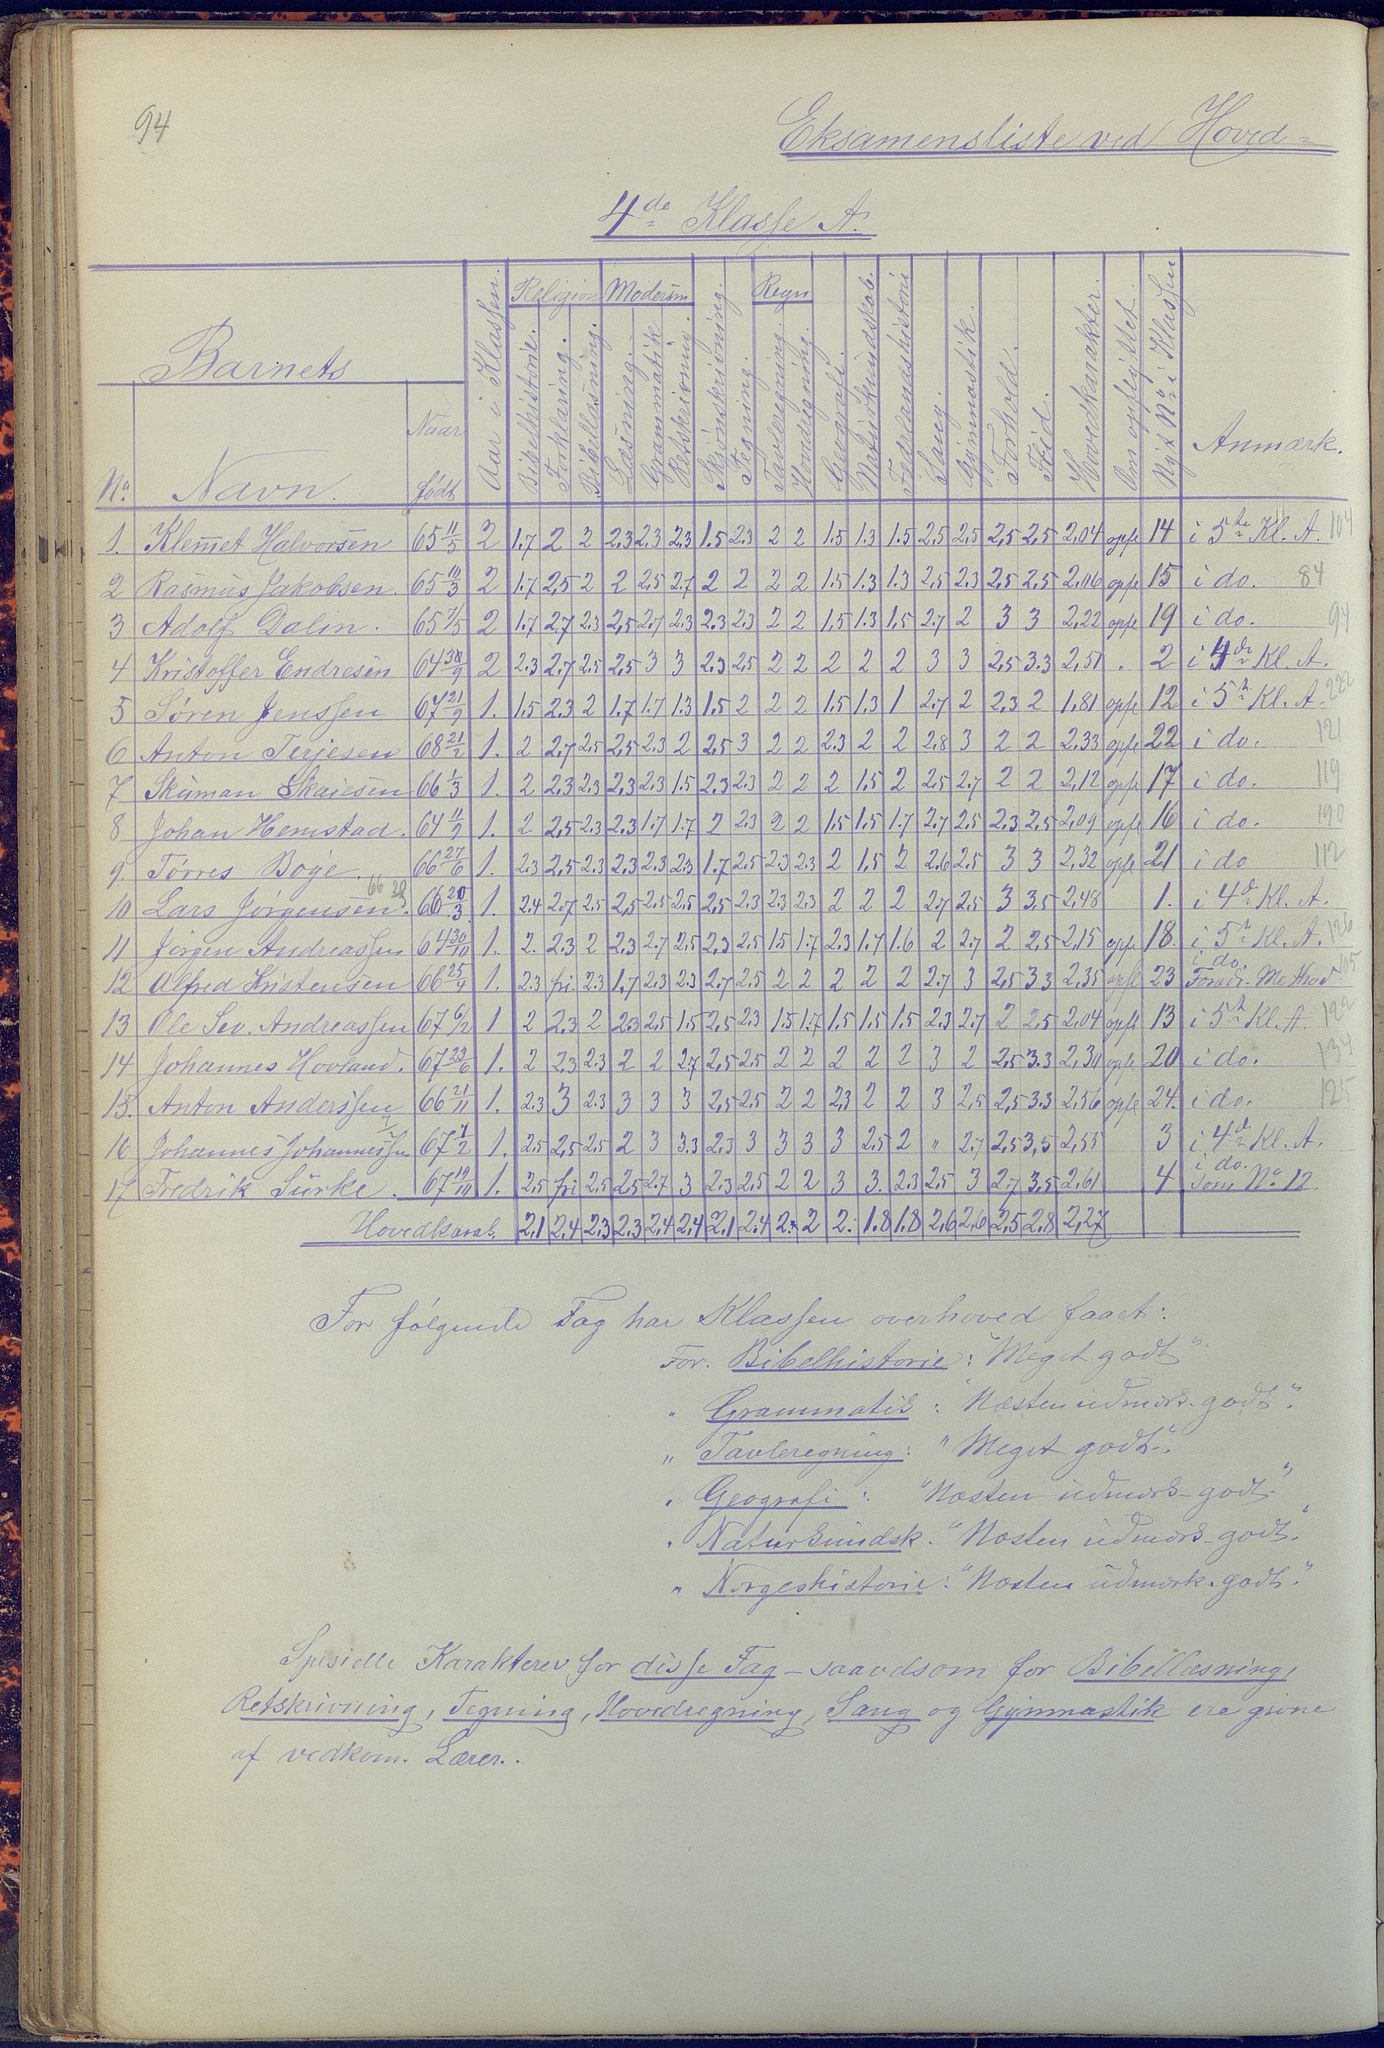 94
Eksamensliste ved Hoved-
4de Klasse A.
Barnets
No. Navn. Naar født Aar i Klassen. Religion Bibelhistorie. Forklaring. Bibellæsning. Modersm Læsning. Grammatik Retskrivning. Skjønskrivning. Tegning. Regn Tavleregning. Hovdregning. Geografi. Naturkundskab. Fædrlandshistori Sang. Gymnastik. Forhold. Flid. Hovedkarakter. Om opflyttet. Nyt No i Klassen Anmærk.
1. Klemet Halvorsen 65 11/5 2 1.7 2 2 2,3 2,3 2,3 1.5 2.3 2 2 1.5 1.3 1.5 2,5 2,5 2,5 2,5 2,04 opfl 14 i 5te Kl. A. 104
2 Rasmus Jakobsen. 65 10/3 2 1.7 2,5 2 2 2,5 2.7 2 2 2 2 1.5 1.3 1.3 2,5 2.3 2,5 2,5 2,06 opfl 15 i do. 84
3 Adolf Dalin. 65 7/5 2 1.7 2,7 2.3 2,5 2.7 2.3 2.3 2.3 2 2 1.5 1.3 1,5 2.7 2 3 3 2,22 opfl 19 i do. 94
4 Kristoffer Endresen 64 30/9 2 2.3 2.7 2,5 2,5 3 3 2.3 2,5 2 2 2 2 2 3 3 2,5 3.3 2,51 . 2 i 4de Kl. A.
5 Søren Jenssen 67 21/9 1. 1.5 2.3 2 1.7 1.7 1.3 1.5 2 2 2 1.5 1.3 1 2.7 2 2.3 2 1,81 opfl 12 i 5te Kl. A. 222
6 Anton Terjesen 68 21/2 1. 2 2,7 2,5 2,5 2.3 2 2,5 3 2 2 2.3 2 2 2,8 3 2 2 2.33 opfl 22 i do. 121
7 Skuman Skaiesen 66 1/3 1. 2 2.3 2.3 2,3 2.3 1.5 2.3 2.3 2 2 2 1.5 2 2,5 2.7 2 2 2,12 opfl 17 i do. 119
8 Johan Hemstad. 64 11/2 1. 2 2,5 2.3 2.3 1.7 1.7 2 2.3 2 2 1.5 1.5 1.7 2.7 2.5 2.3 2,5 2,09 opfl 16 i do. 190
9 Tørres Boge. 66 27/6 1. 2.3 2,5 2.3 2,3 2.3 2.3 1.7 2.5 2.3 2.3 2 1.5 2 2.6 2.5 3 3 2,32 opfl 21 i do 112
10 Lars Jørgensen. 66 20/3 1. 2.4 2.7 2.5 2,5 2.5 2.5 2.5 2.3 2.3 2.3 2 2 2 2.7 2.5 3 3.5 2,48 1. i 4de Kl. A.
11 Jørgen Andreassen 64 30/10 1. 2. 2.3 2 2.3 2.7 2,5 2.3 2.5 1.5 1.7 2.3 1.7 1.6 2 2.7 2 2.5 2,15 opfl 18. i 5te Kl. A. 126
i do.
12 Alfred Kristensen 66 25/4 1. 2.3 fri. 2.3 1,7 2.3 2.3 2.7 2.5 2 2 2 2 2 2.7 3 2,5 3.3 2,35 opfl 23 105
13 Ole Sev. Andreassen 67 6/2 1 2 2.3 2 2.3 2,5 1.5 2,5 2.3 1.5 1.7 1.5 1.5 1.5 2.3 2.7 2 2.5 2,04 opfl 13 i 5te Kl. A. 122
14 Johannes Hovland. 67 23/6 1. 2 2.3 2.3 2 2 2.7 2,5 2.5 2 2 2 2 2 3 2 2,5 3.3 2,30 opfl 20 i do. 134
15. Anton Anderssen 66 21/11 1. 2.3 3 2.3 3 3 3 2,5 2.5 2 2 2,3 2 2 3 2,5 2,5 3.3 2,56 opfl 24. i do. 125
16 Johannes Johannessen 67 7/2 1. 2.5 2,5 2.5 2 3 3.3 2,3 3 3 3 3 2.5 2 " 2.7 2,5 3,5 2,55 3 i 4de Kl. A.
i do.
17 Fredrik Surke. 67 19/10 1. 2,5 fri 2.5 2.5 2.7 3 2.3 2,5 2 2 3 3. 2.3 2.5 3 2.7 3,5 2,61 4 som No 12.
Hovedkarak. 2,1 2,4 2,3 2,3 2,4 2,4 2,1 2.4 2. 2 2. 1.8 1.8 2,6 2,6 2,5 2,8 2,27
For følgende Fag har Klassen overhoved faaet:
For. Bibelhistorie: "Meget godt"
" Grammatik: "Næsten udmærk. godt".
" Tavleregning: "Meget godt".
" Geografi: "Næsten udmærk-godt"
" Naturkundsk. "Næsten udmærk-godt".
" Norgeshistorie: "Næsten udmærk. godt."
Spesielle Karakterer for disse Fag - saavdsom for Bibellæsning,
Retskrivning, Tegning, Hovedregning, Sang og Gymnastik ere givne
af vedkom. Lærer.